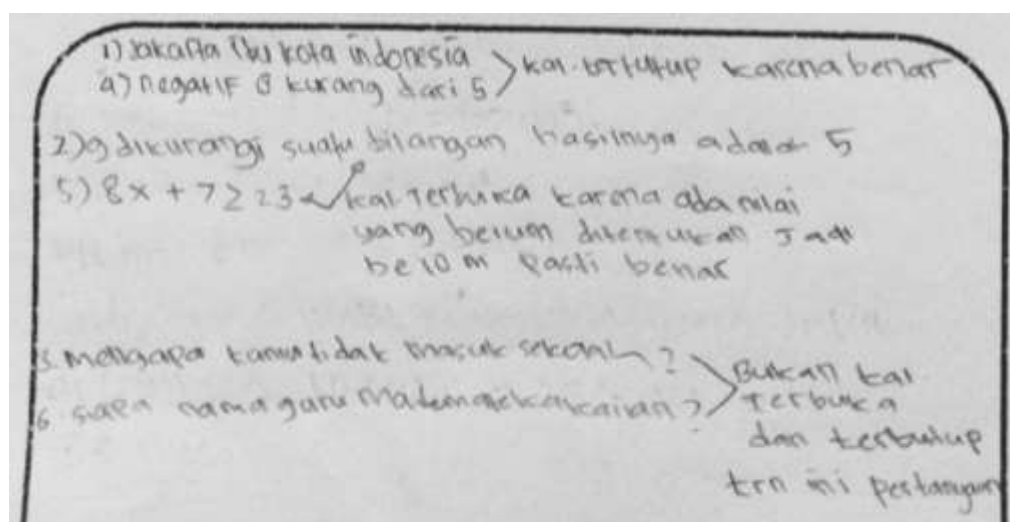 1) Jakarta Ibu kota indonesia
4) negatif 8 kurang dari 5
kal. tertutup karena benar
2) 9 dikurangi suatu bilangan hasilnya adalah 5
5) 8x + 7 ≥ 23
kal. Terbuka karena ada nilai
yang belum ditentukan Jadi
belom Pasti benar
3. Mengapa kamu tidak masuk sekolah?
6. siapa nama guru Matematika kalian?
Bukan kal.
Terbuka
dan terbutup
krn ini pertanyaan